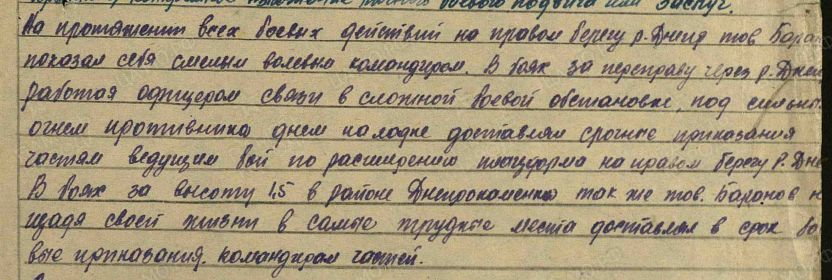 краткое конкретное изложение личного боевого подвига или заслуг.
На протяжении всех боевых действий на правом берегу р. Днепр тов Баран
показал себя смелым волевым командиром. В боях за переправу через р. Днеп
работая офицером связи в сложной боевой обстановке, под сильны
огнем противника днем на лодке доставлял срочные приказания
частям ведущим бой по расширению плацдарма на правом берегу р. Дне
В боях за высоту 1,5 в районе Днепрокаменка так же тов. Баранов н
щадя своей жизни в самые трудные места доставлял в срок бо
вые приказания командирам частей.